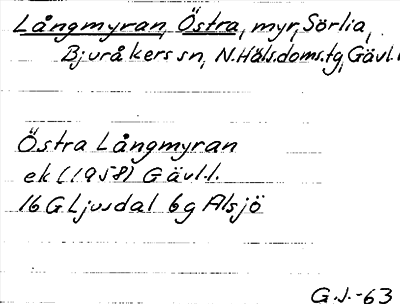 Långmyran, Östra, myr, Sörlia,
Bjuråkers sn, N.Häls.doms.tg, Gävl.l
Östra Långmyran
ek (1958) Gävl.l.
16G Ljusdal 6g Alsjö
G.J.-63